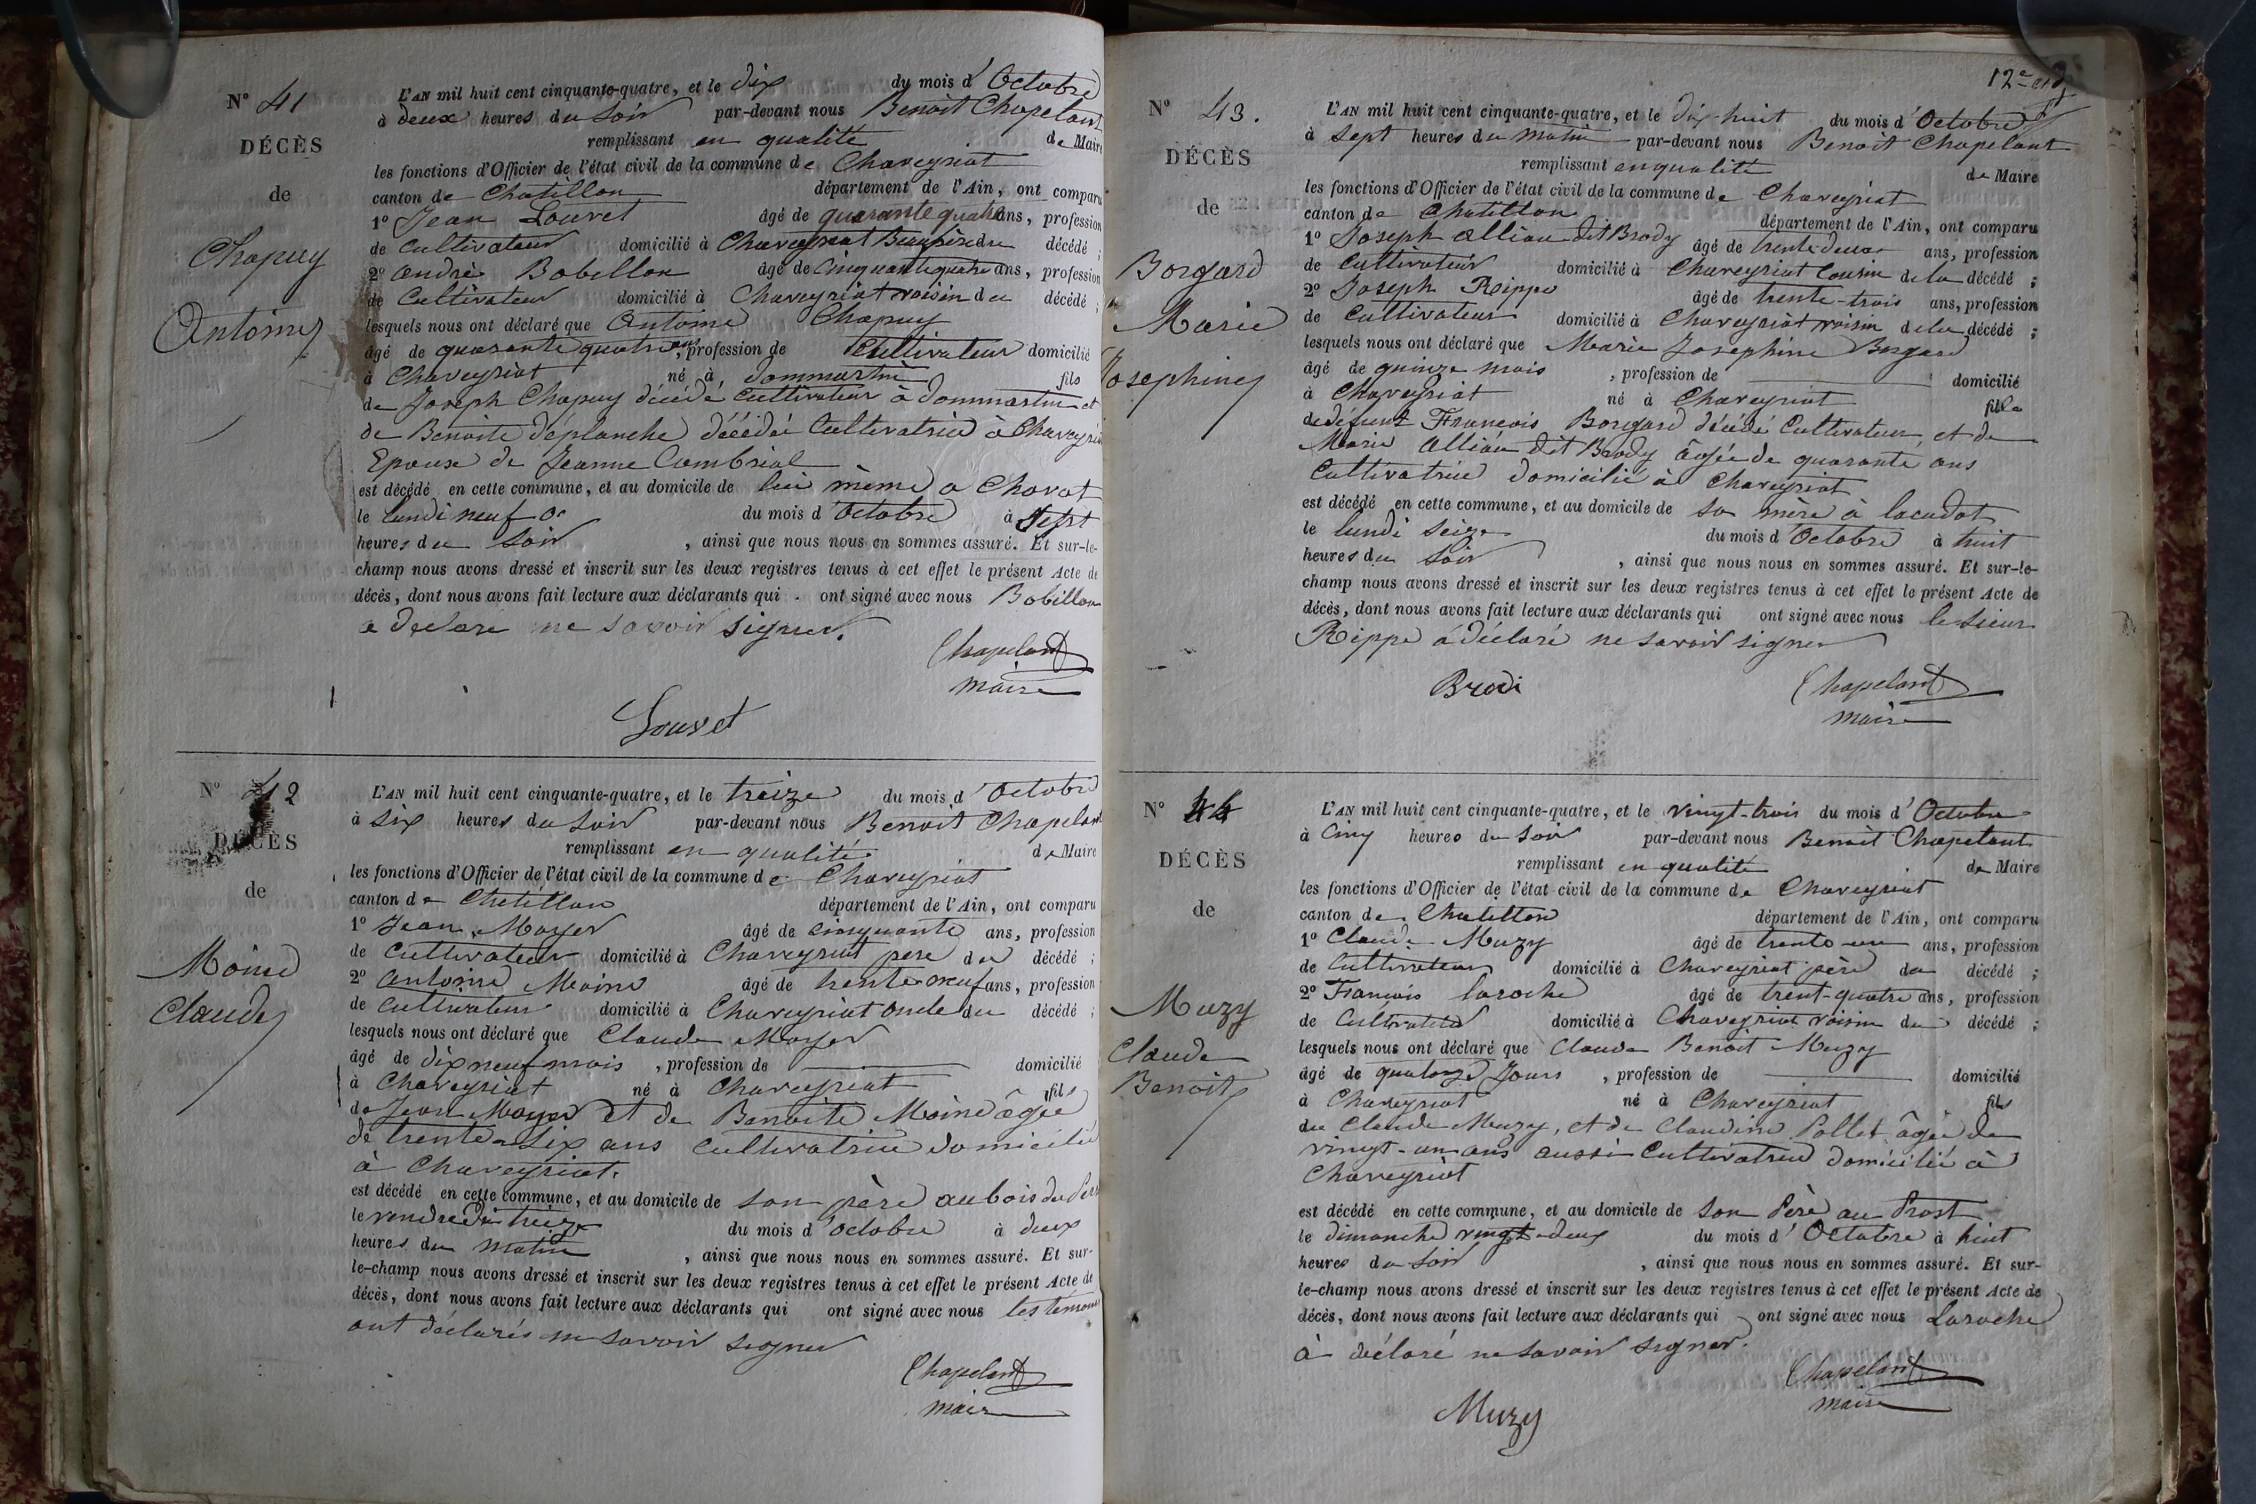 N° 41
DÉCÈS
de
Chapuy
Antoine
L'AN mil huit cent cinquante-quatre, et le dix du mois d'Octobre
à deux heures du soir par-devant nous Benoit Chapelant
remplissant en qualité de Maire
les fonctions d'Officier de l'état civil de la commune de Chaveyriat
canton de Chatillon département de l'Ain, ont comparu
1° Jean Louvet âgé de quarante quatre ans, profession
de Cultivateur domicilié à Chaveyriat Beaupère du décédé ;
2° andré Bobillon âgé de Cinquante quatre ans, profession
de Cultivateur domicilié à Chaveyriat voisin du décédé ;
lesquels nous ont déclaré que Antoine Chapuy
âgé de quarante quatre ans, profession de Cultivateur domicilié
à Chaveyriat né à dommartin fils
de Joseph Chapuy décédé cultivateur à dommartin et
de Benoite déplanche décédé Cultivatrice à Chaveyria
Epoux de Jeanne Cambrial
est décédé en cette commune, et au domicile de lui même a Chavat
le lundi neuf du mois d'Octobre à sept
heures du soir , ainsi que nous nous en sommes assuré. Et sur-le-
champ nous avons dressé et inscrit sur les deux registres tenus à cet effet le présent Acte de
décès, dont nous avons fait lecture aux déclarants qui ont signé avec nous Bobillon
a declaré ne savoir signer.
Chapelant
maire
Louvet
N° 42
DÉCÈS
de
Moine
Claude
L'AN mil huit cent cinquante-quatre, et le treize du mois d'Octobre
à six heures du soir par-devant nous Benoit Chapelant
remplissant en qualité de Maire
les fonctions d'Officier de l'état civil de la commune de Chaveyriat
canton de Chatillon département de l'Ain, ont comparu
1° Jean Moyer âgé de cinquante ans, profession
de Cultivateur domicilié à Chaveyriat pere du décédé ;
2° antoine Moine âgé de trente neuf ans, profession
de cultivateur domicilié à Chaveyriat oncle du décédé ;
lesquels nous ont déclaré que Claude Moyer
âgé de dix neuf mois , profession de domicilié
à Chaveyriat né à Chaveyriat fils
de Jean Moyer et de Benoite Moine âgée
de trente-six ans cultivatrice domicilié
à Chaveyriat.
est décédé en cette commune, et au domicile de son père au bois du
le vendredi treize du mois d'octobre à deux
heures du matin , ainsi que nous nous en sommes assuré. Et sur-
le-champ nous avons dressé et inscrit sur les deux registres tenus à cet effet le présent Acte de
décès, dont nous avons fait lecture aux déclarants qui ont signé avec nous les témoins
ont déclarés ne savoir signer
Chapelant
maire
N° 43.
DÉCÈS
de
Borgard
Marie
Josephine
L'AN mil huit cent cinquante-quatre, et le dix-huit du mois d'Octobre
à sept heures du matin par-devant nous Benoit Chapelant
remplissant en qualité de Maire
les fonctions d'Officier de l'état civil de la commune de Chaveyriat
canton de Chatillon département de l'Ain, ont comparu
1° Joseph alliau dit Brody âgé de trente-deux ans, profession
de Cultivateur domicilié à Chaveyriat Cousin de la décédé ;
2° Joseph Rippe âgé de trente-trois ans, profession
de Cultivateur domicilié à Chaveyriat voisin de la décédé ;
lesquels nous ont déclaré que Marie Josephine Borgard
âgé de quinze mois , profession de domicilié
à Chaveyriat né à Chaveyriat fille
de défunt François Borgard décédé Cultivateur, et de
Marie alliau dit Brody âgée de quarante ans
Cultivatrice domicilié à Chaveyriat
est décédé en cette commune, et au domicile de sa mère à lacudot
le lundi seize du mois d'Octobre à huit
heures du soir , ainsi que nous nous en sommes assuré. Et sur-le-
champ nous avons dressé et inscrit sur les deux registres tenus à cet effet le présent Acte de
décès, dont nous avons fait lecture aux déclarants qui ont signé avec nous le sieur
Rippe a déclaré ne savoir signer
Brodi
Chapelant
maire
N° 44
DÉCÈS
de
Muzy
Claude
Benoit
L'AN mil huit cent cinquante-quatre, et le vingt-trois du mois d'Octobre
à Cinq heures du soir par-devant nous Benoit Chapelant
remplissant en qualité de Maire
les fonctions d'Officier de l'état civil de la commune de Chaveyriat
canton de Chatillon département de l'Ain, ont comparu
1° Claude Muzy âgé de trente-un ans, profession
de Cultivateur domicilié à Chaveyriat père du décédé ;
2° François laroche âgé de trent-quatre ans, profession
de Cultivateur domicilié à Chaveyriat voisin du décédé ;
lesquels nous ont déclaré que Claude Benoit Muzy
âgé de quatorze Jours , profession de domicilié
à Chaveyriat né à Chaveyriat fils
de Claude Muzy, et de Claudine Pollet âgée de
vingt-un ans aussi Cultivatrice domicilié à
Chaveyriat
est décédé en cette commune, et au domicile de son Père au Prost
le dimanche vingt-deux du mois d'Octobre à huit
heures du soir , ainsi que nous nous en sommes assuré. Et sur-
le-champ nous avons dressé et inscrit sur les deux registres tenus à cet effet le présent Acte de
décès, dont nous avons fait lecture aux déclarants qui ont signé avec nous Laroche
à déclaré ne savoir signer.
Chapelant
maire
Muzy